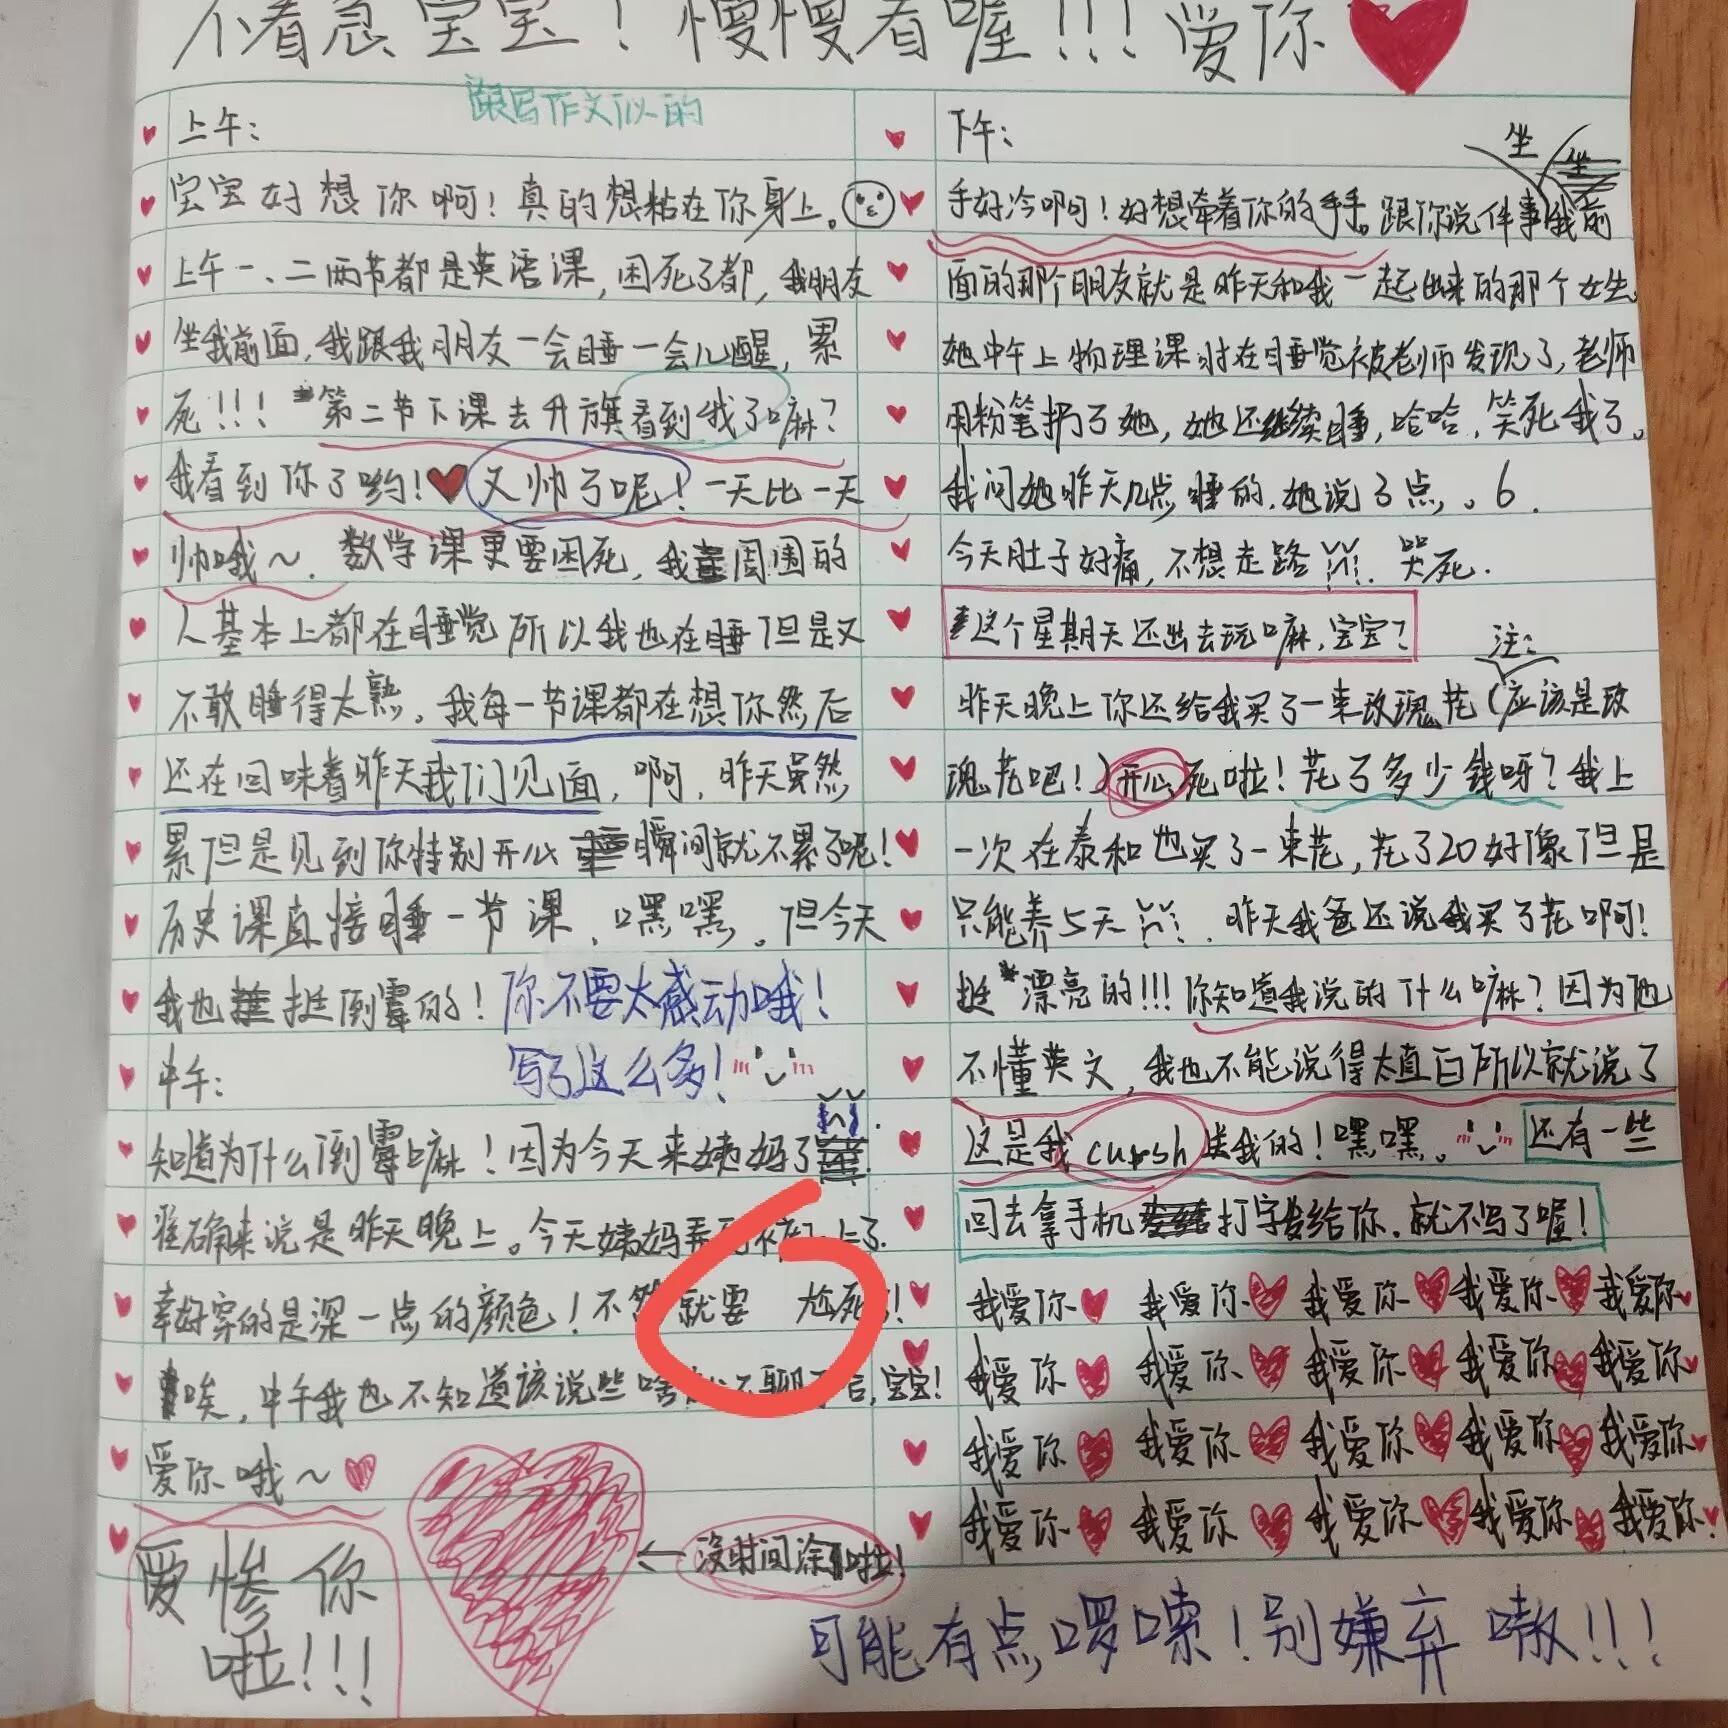 不着急宝宝！慢慢看喔!!!爱你
跟写作文似的
上午：
宝宝好想你啊！真的想粘在你身上。
上午一、二两节都是英语课，困死了都，我朋友
坐我前面，我跟我朋友一会睡一会儿醒，累
死!!!第二节下课去升旗看到我了嘛？
我看到你了哟！又帅了呢！一天比一天
帅哦～．数学课更要困死，我周围的
人基本上都在睡觉所以我也在睡但是又
不敢睡得太熟。我每一节课都在想你然后
还在回味着昨天我们见面，啊，昨天虽然
累但是见到你特别开心瞬间就不累了呢！
历史课直接睡一节课，嘿嘿。但今天
我也挺倒霉的！你不要太感动哦！
写了这么多！
中午：
知道为什么倒霉嘛！因为今天来姨妈了
准确来说是昨天晚上。今天姨妈弄上了.
幸好穿的是深一点的颜色！不就要尬死！
唉，中午我也不知道该说些啥，宝宝！
爱你哦～
爱惨你
啦!!!
没时间涂啦！
下午：
坐
手好冷啊！好想牵着你的手手。跟你说件事我前
面的那个朋友就是昨天和我一起出来的那个女生.
她中午上物理课时在睡觉被老师发现了，老师
用粉笔扔了她，她还继续睡，哈哈，笑死我了。
我问她昨天几点睡的.她说3点。。6.
今天肚子好痛，不想走路．哭死.
这个星期天还出去玩嘛，宝宝？
注：
昨天晚上你还给我买了一束玫瑰花（应该是玫
瑰花吧！）开心死啦！花了多少钱呀？我上
一次在泰和也买了一束花，花了20好像但是
只能养5天．昨天我爸还说我买了花啊！
挺漂亮的!!!你知道我说的什么嘛？因为他
不懂英文，我也不能说得太直白所以就说了
这是我cursh送我的！嘿嘿。还有一些
回去拿手机打字发给你.就不写了喔！
我爱你 我爱你 我爱你 我爱你 我爱你
我爱你 我爱你 我爱你 我爱你 我爱你
我爱你 我爱你 我爱你 我爱你 我爱你
我爱你 我爱你 我爱你 我爱你 我爱你
可能有点啰嗦！别嫌弃嗷!!!